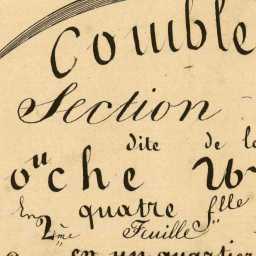 Comble
Section
dite de la
ouche
En quatre flle
2ème Feuille
en un quartier